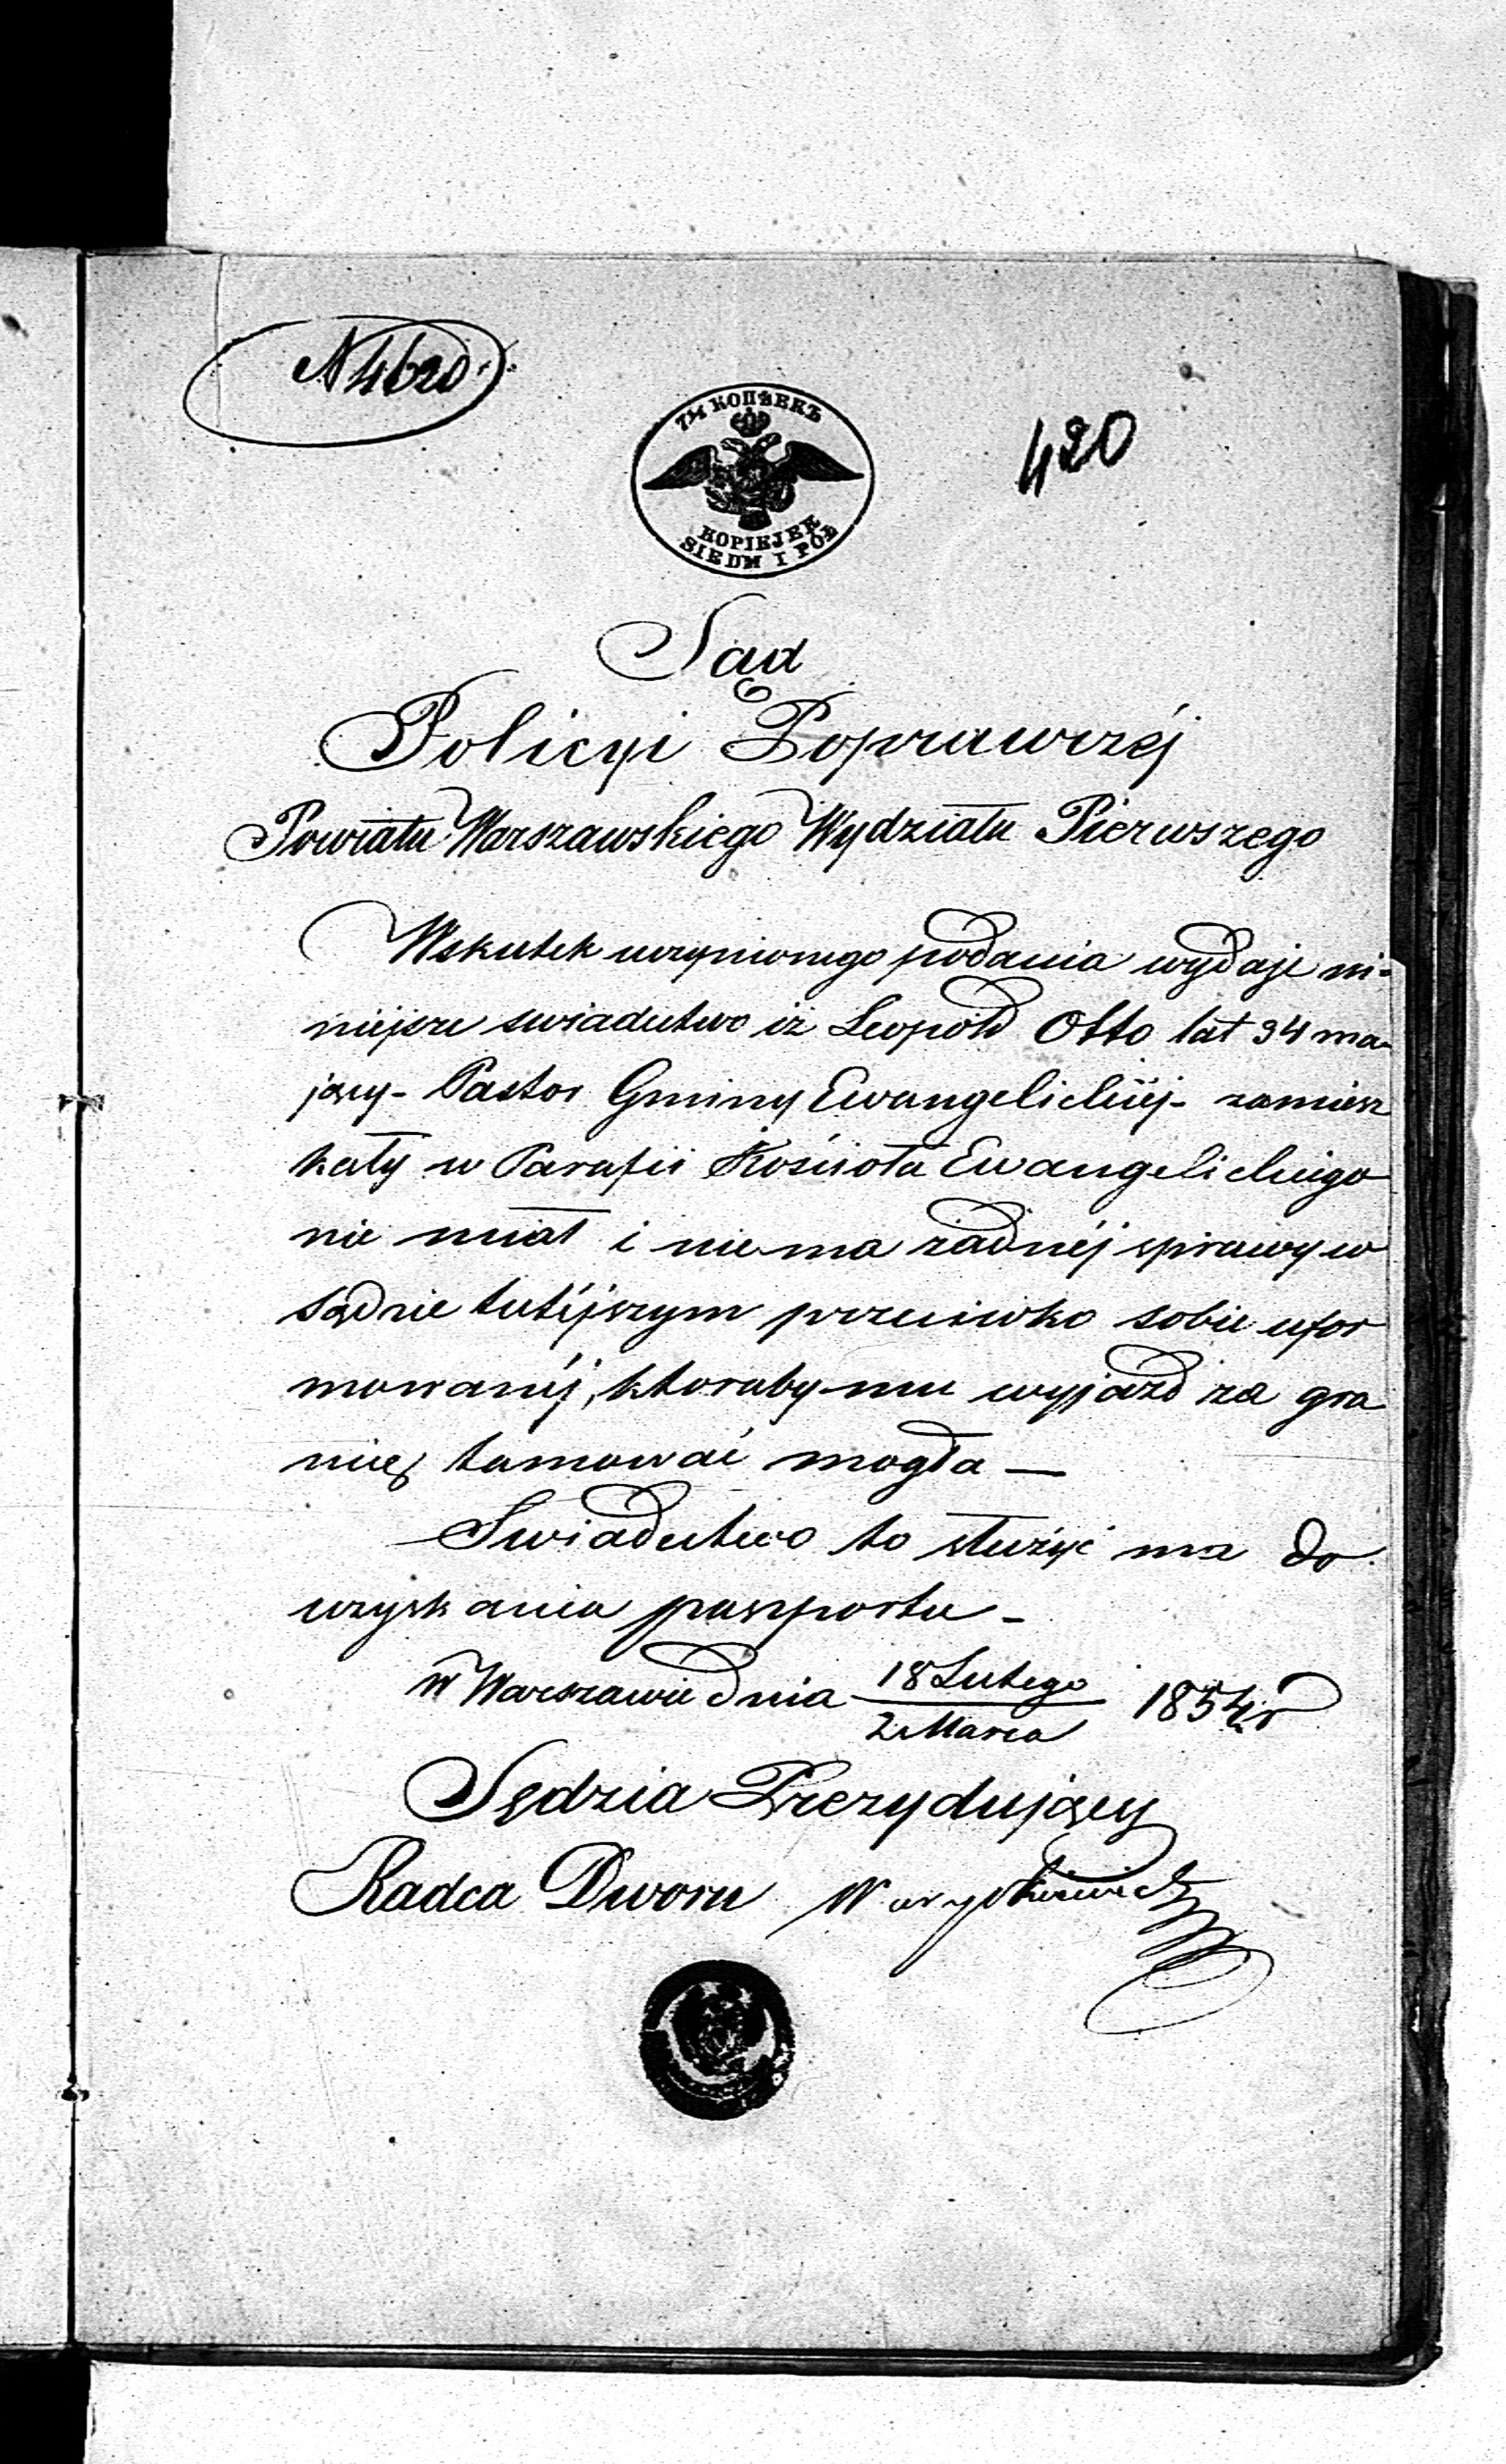 N 4620
7½ КОПѢЕКЪ
420
KOPIEJEK
SIEDM I PÓŁ
Sąd
Policyi Poprawczéj
Powiatu Warszawskiego Wydziału Pierwszego
Wskutek uczynionego podania wydaje ni-
niejsze swiadectwo iż Leopold Otto lat 34 ma-
jący - Pastor Gminy Ewangelickiéj - zamiesz
kały w Parafii Kościoła Ewangelickiego
nie miał i niema żadnéj sprawy w
sądzie tutéjszym przeciwko sobie ufor
mowanéj, ktoraby mu wyjazd za gra
nicę tamować mogła —
Swiadectwo to służyć ma do
uzyskania paszportu -
w Warszawie dnia 18 Lutego / 2 Marca 1854 r
Sędzia Prezydujący
Radca Dworu